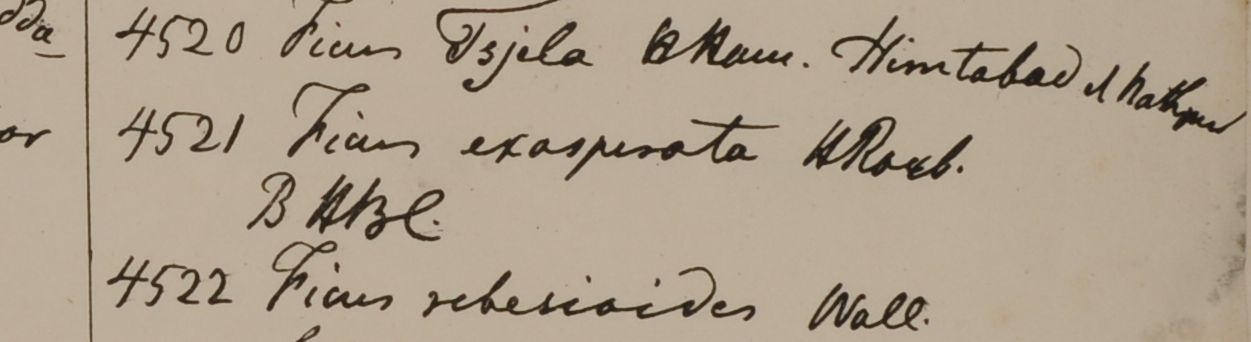 dda
4520 Ficus Tsjela HHam. Himtabad & Nathpur
or
4521 Ficus exasperata HRoxb.
B HBC.
4522 Ficus rebesioides Wall.